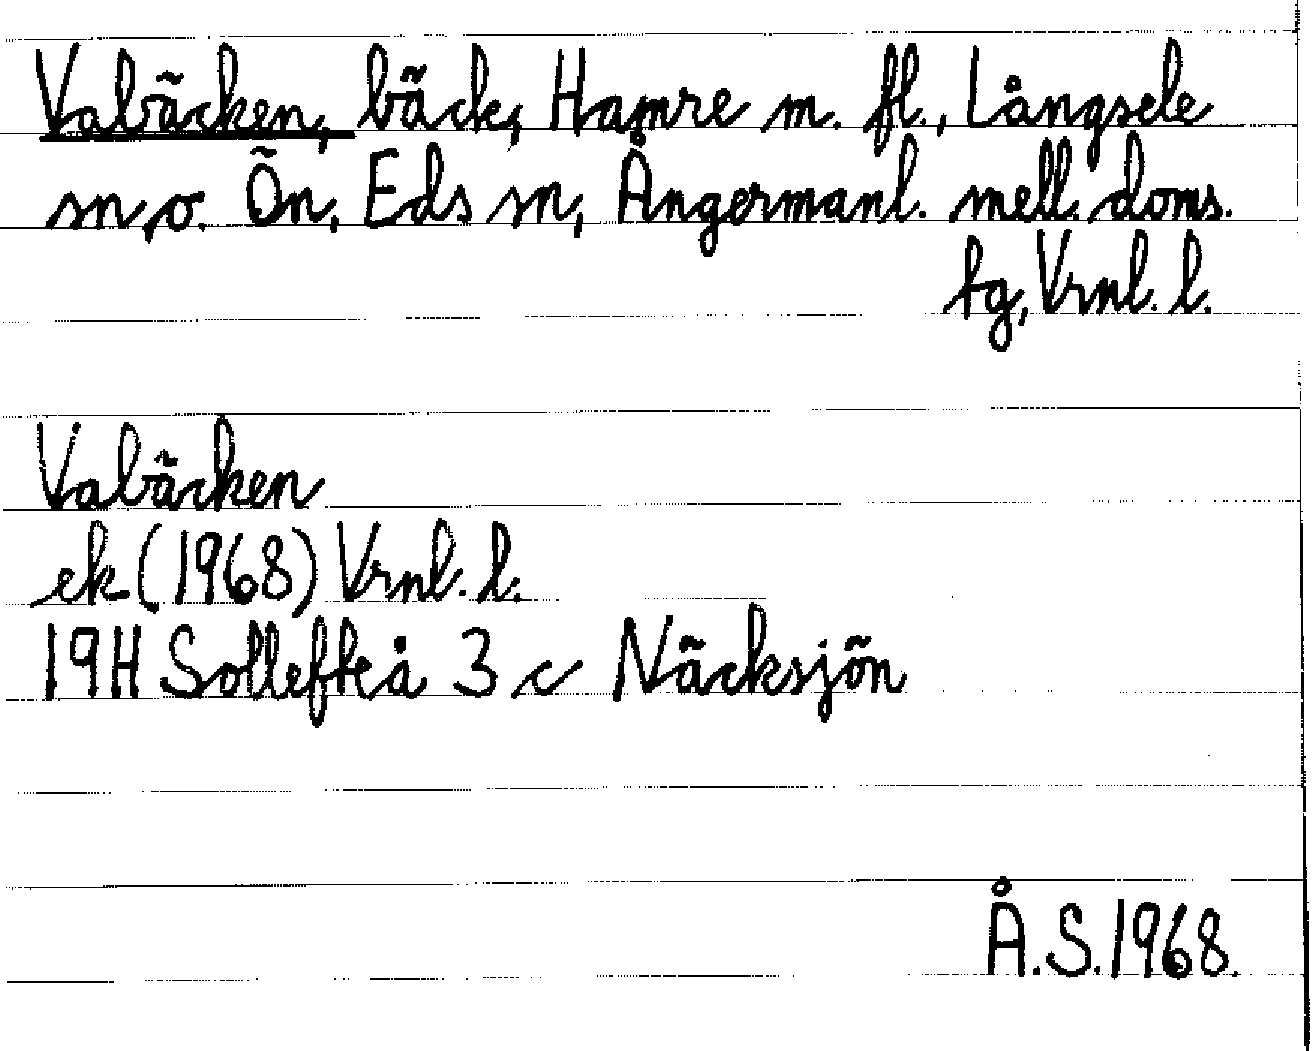 Vabäcken, bäck, Hamre m. fl., Långsele
sn, o. Ön, Eds sn, Ångermanl. mell. doms.
tg, Vrnl. l.
Vabäcken
ek (1968) Vrnl. l.
19H Sollefteå 3 c Näcksjön
Å.S. 1968.